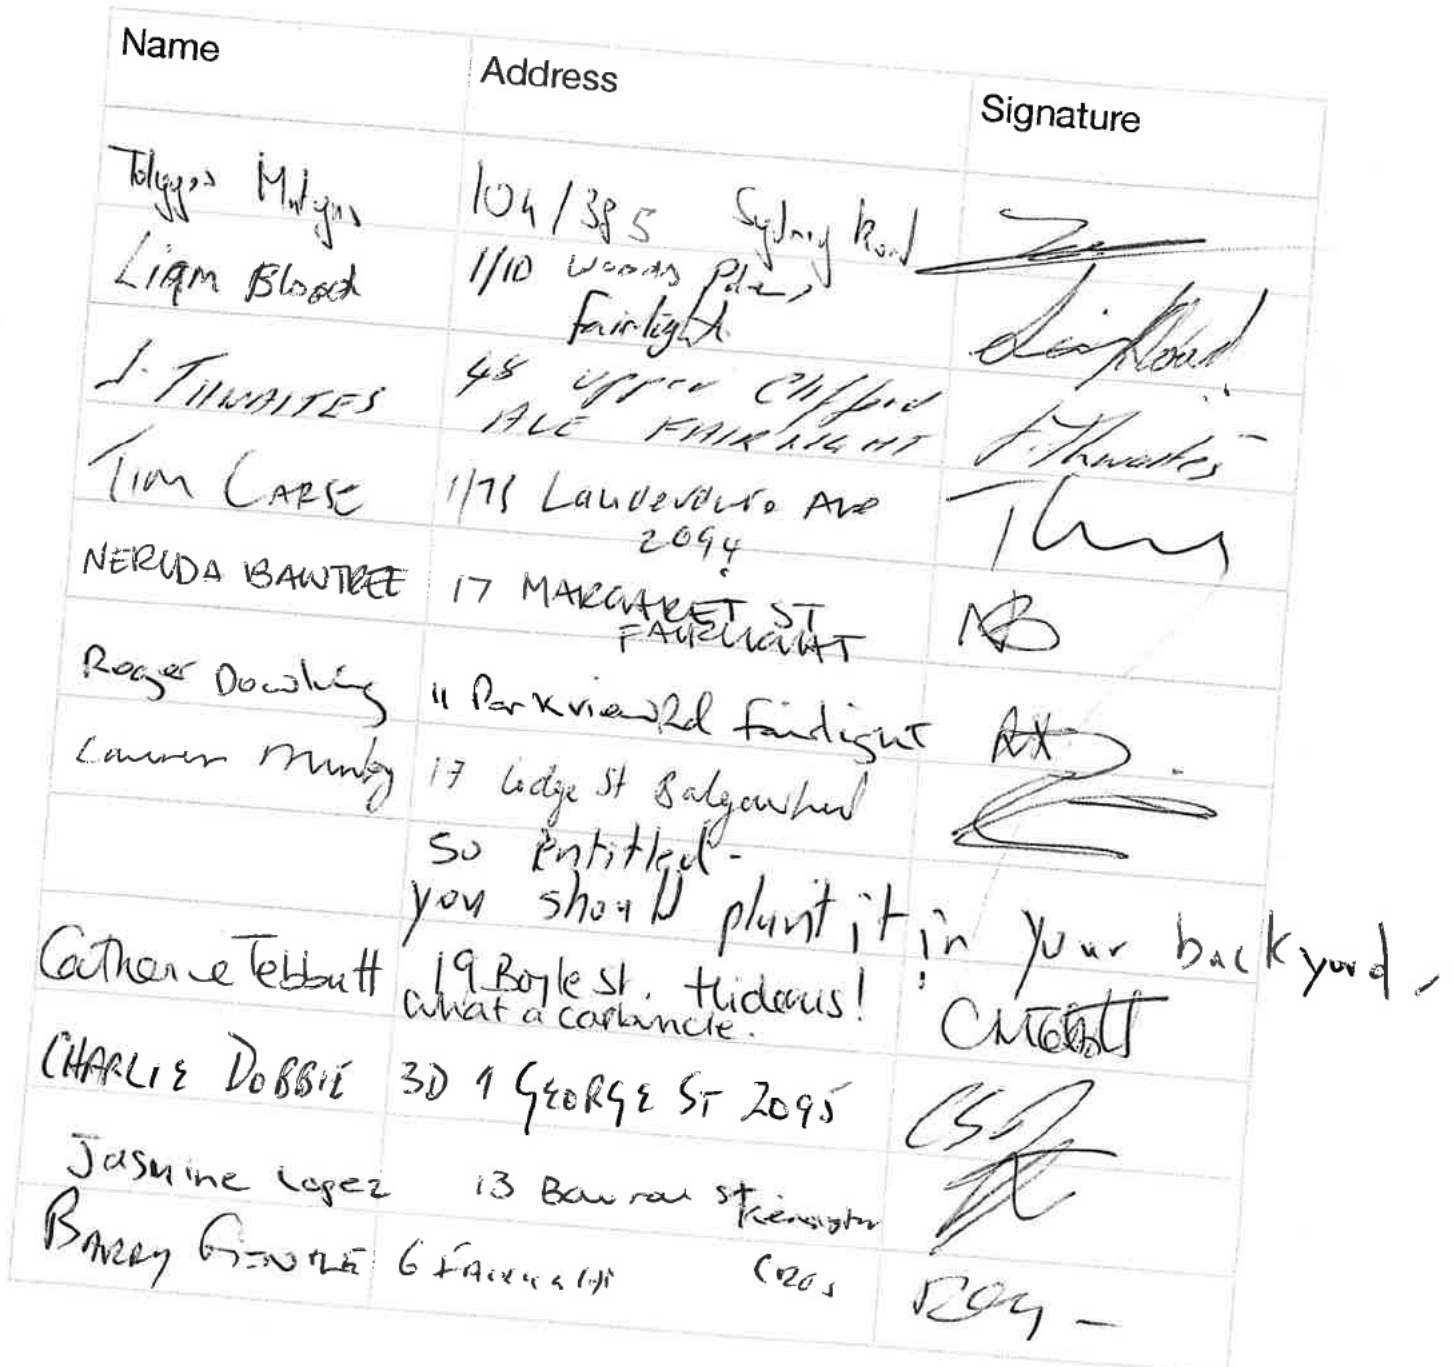 Name Address Signature
104/385 Sydney Road
Liam Blood 1/10 Woods Place,
Fairlight
J. THWAITES 48 Upper Clifford
AVE FAIRLIGHT J. Thwaites
TIM CARSE 1/75 Lauderdale Ave
2094
NERUDA BAWTREE 17 MARGARET ST NB
FAIRLIGHT
Roger Dowling 11 Parkview Rd Fairlight
Lauren Munby 17 Lodge St Balgowlah
So Entitled-
you should plant it in your backyard.
Catherine Tebbutt 19 Boyle St. Hideous!
what a carbuncle.
CHARLIE DOBBIE 3D 9 GEORGE ST 2095
Jasmine Lopez 13 St Kensington
BARRY 6 FAIRLIGHT CRES